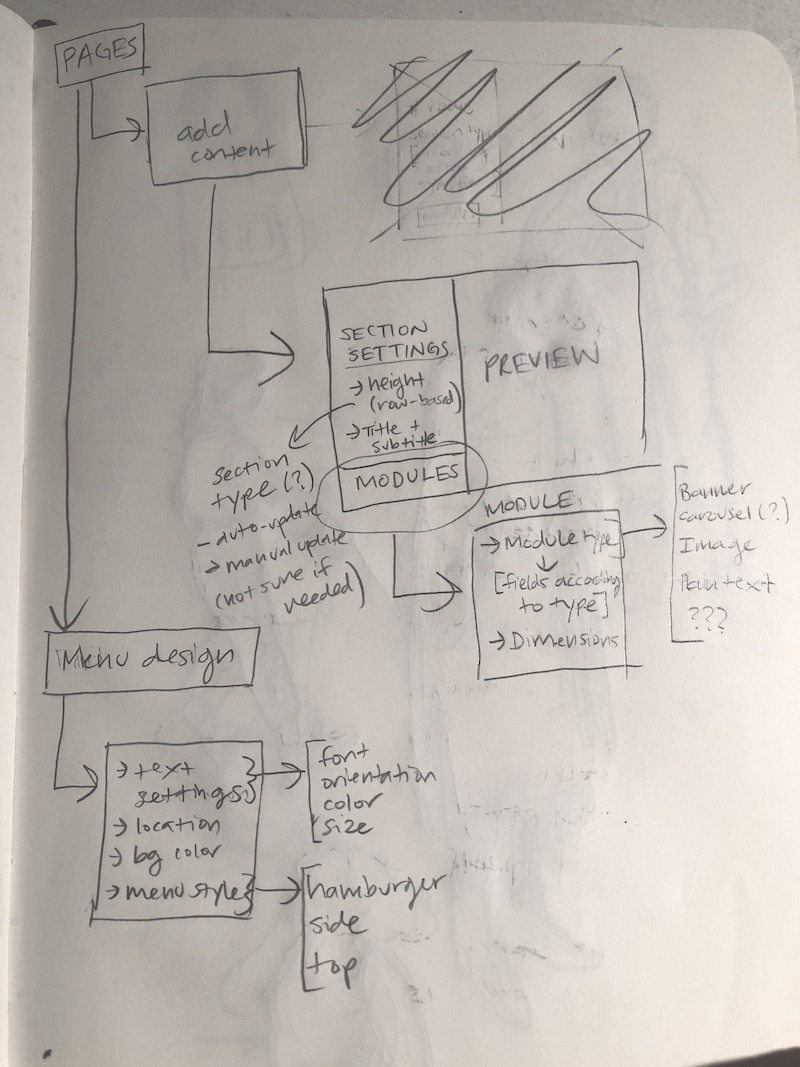 PAGES
add
content
SECTION
SETTINGS
→ height
(row-based)
→ Title +
subtitle
MODULES
PREVIEW
section
type (?)
- auto-update
→ manual update
(not sure if
needed)
MODULE
→ Module type
[fields according
to type]
→ Dimensions
Banner
carousel (?)
Image
Plain text
???
Menu design
→ text
settings
→ location
→ bg color
→ menu style
font
orientation
color
size
hamburger
side
top